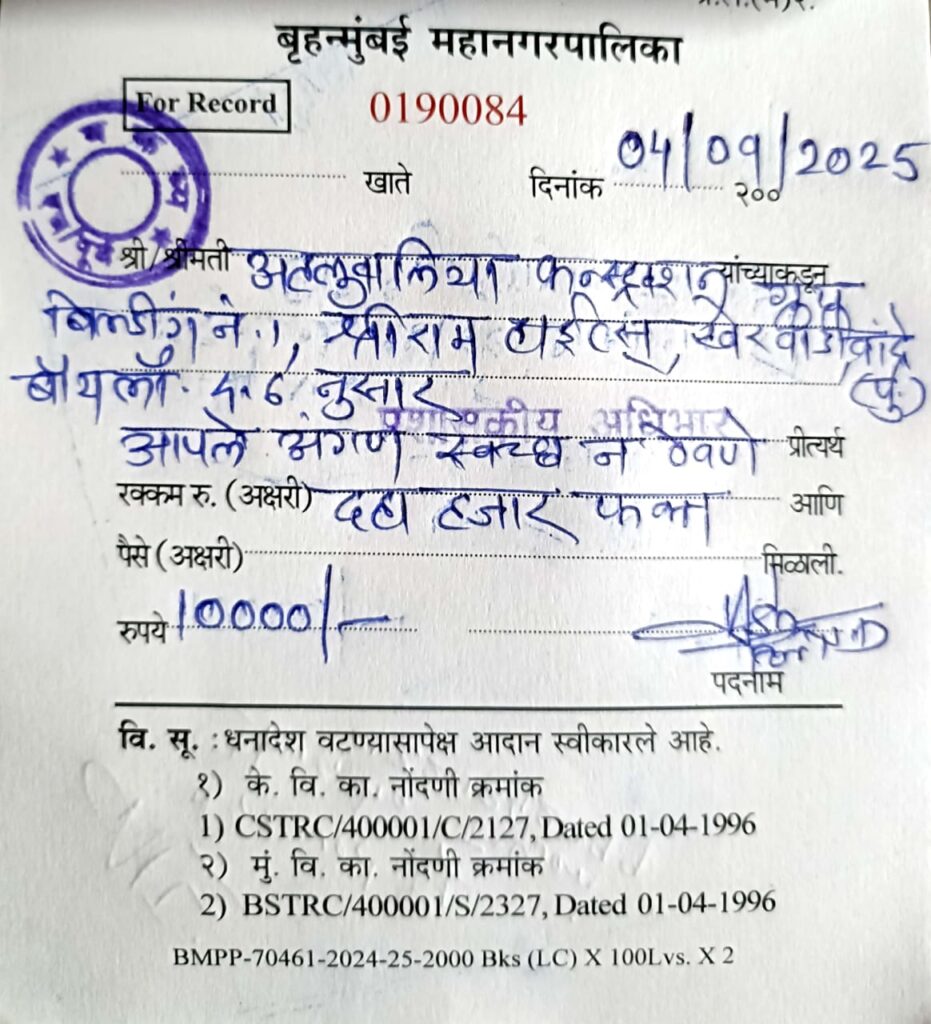 बृहन्मुंबई महानगरपालिका
For Record 0190084
खाते दिनांक 04/09/2025 २००
श्री/श्रीमती अहलुवालिया कन्स्ट्रक्शन यांच्याकडून
बिल्डींग नं. 1, श्रीराम हाईटस्, खेरवाडी बांद्रे (पु.)
बॉयलॉ. 4.6 नुसार
प्रशासकीय अधिभार
आपले अंगण स्वच्छ न ठेवणे प्रीत्यर्थ
रक्कम रु. (अक्षरी) दहा हजार फक्त आणि
पैसे (अक्षरी) मिळाली.
रुपये 10000/-
पदनाम
वि. सू. : धनादेश वटण्यासापेक्ष आदान स्वीकारले आहे.
१) के. वि. का. नोंदणी क्रमांक
1) CSTRC/400001/C/2127, Dated 01-04-1996
२) मुं. वि. का. नोंदणी क्रमांक
2) BSTRC/400001/S/2327, Dated 01-04-1996
BMPP-70461-2024-25-2000 Bks (LC) X 100Lvs. X 2